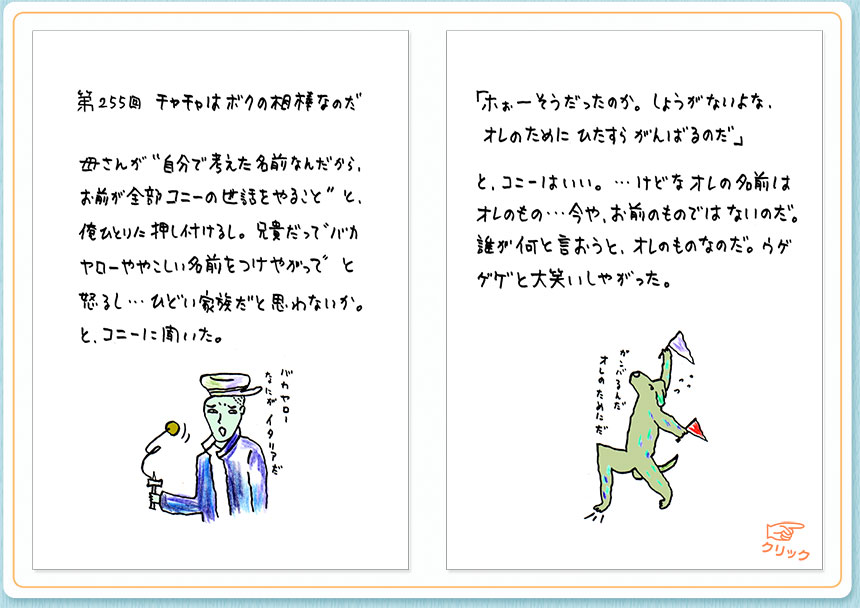 第255回 チャチャはボクの相棒なのだ
母さんが“自分で考えた名前なんだから、
お前が全部コニーの世話をやること”と、
俺ひとりに押し付けるし。兄貴だって“バカ
ヤローややこしい名前をつけやがって”と
怒るし…ひどい家族だと思わないか。
と、コニーに聞いた。
バカヤロー
なにが イタリアだ
「ホぉーそうだったのか。しょうがないよな、
オレのために ひたすら がんばるのだ」
と、コニーはいい。…けどな オレの名前は
オレのもの…今や、お前のものではないのだ。
誰が何と言おうと、オレのものなのだ。ウゲ
ゲゲと大笑いしやがった。
ガンバるんだ
オレのためにだ
クリック